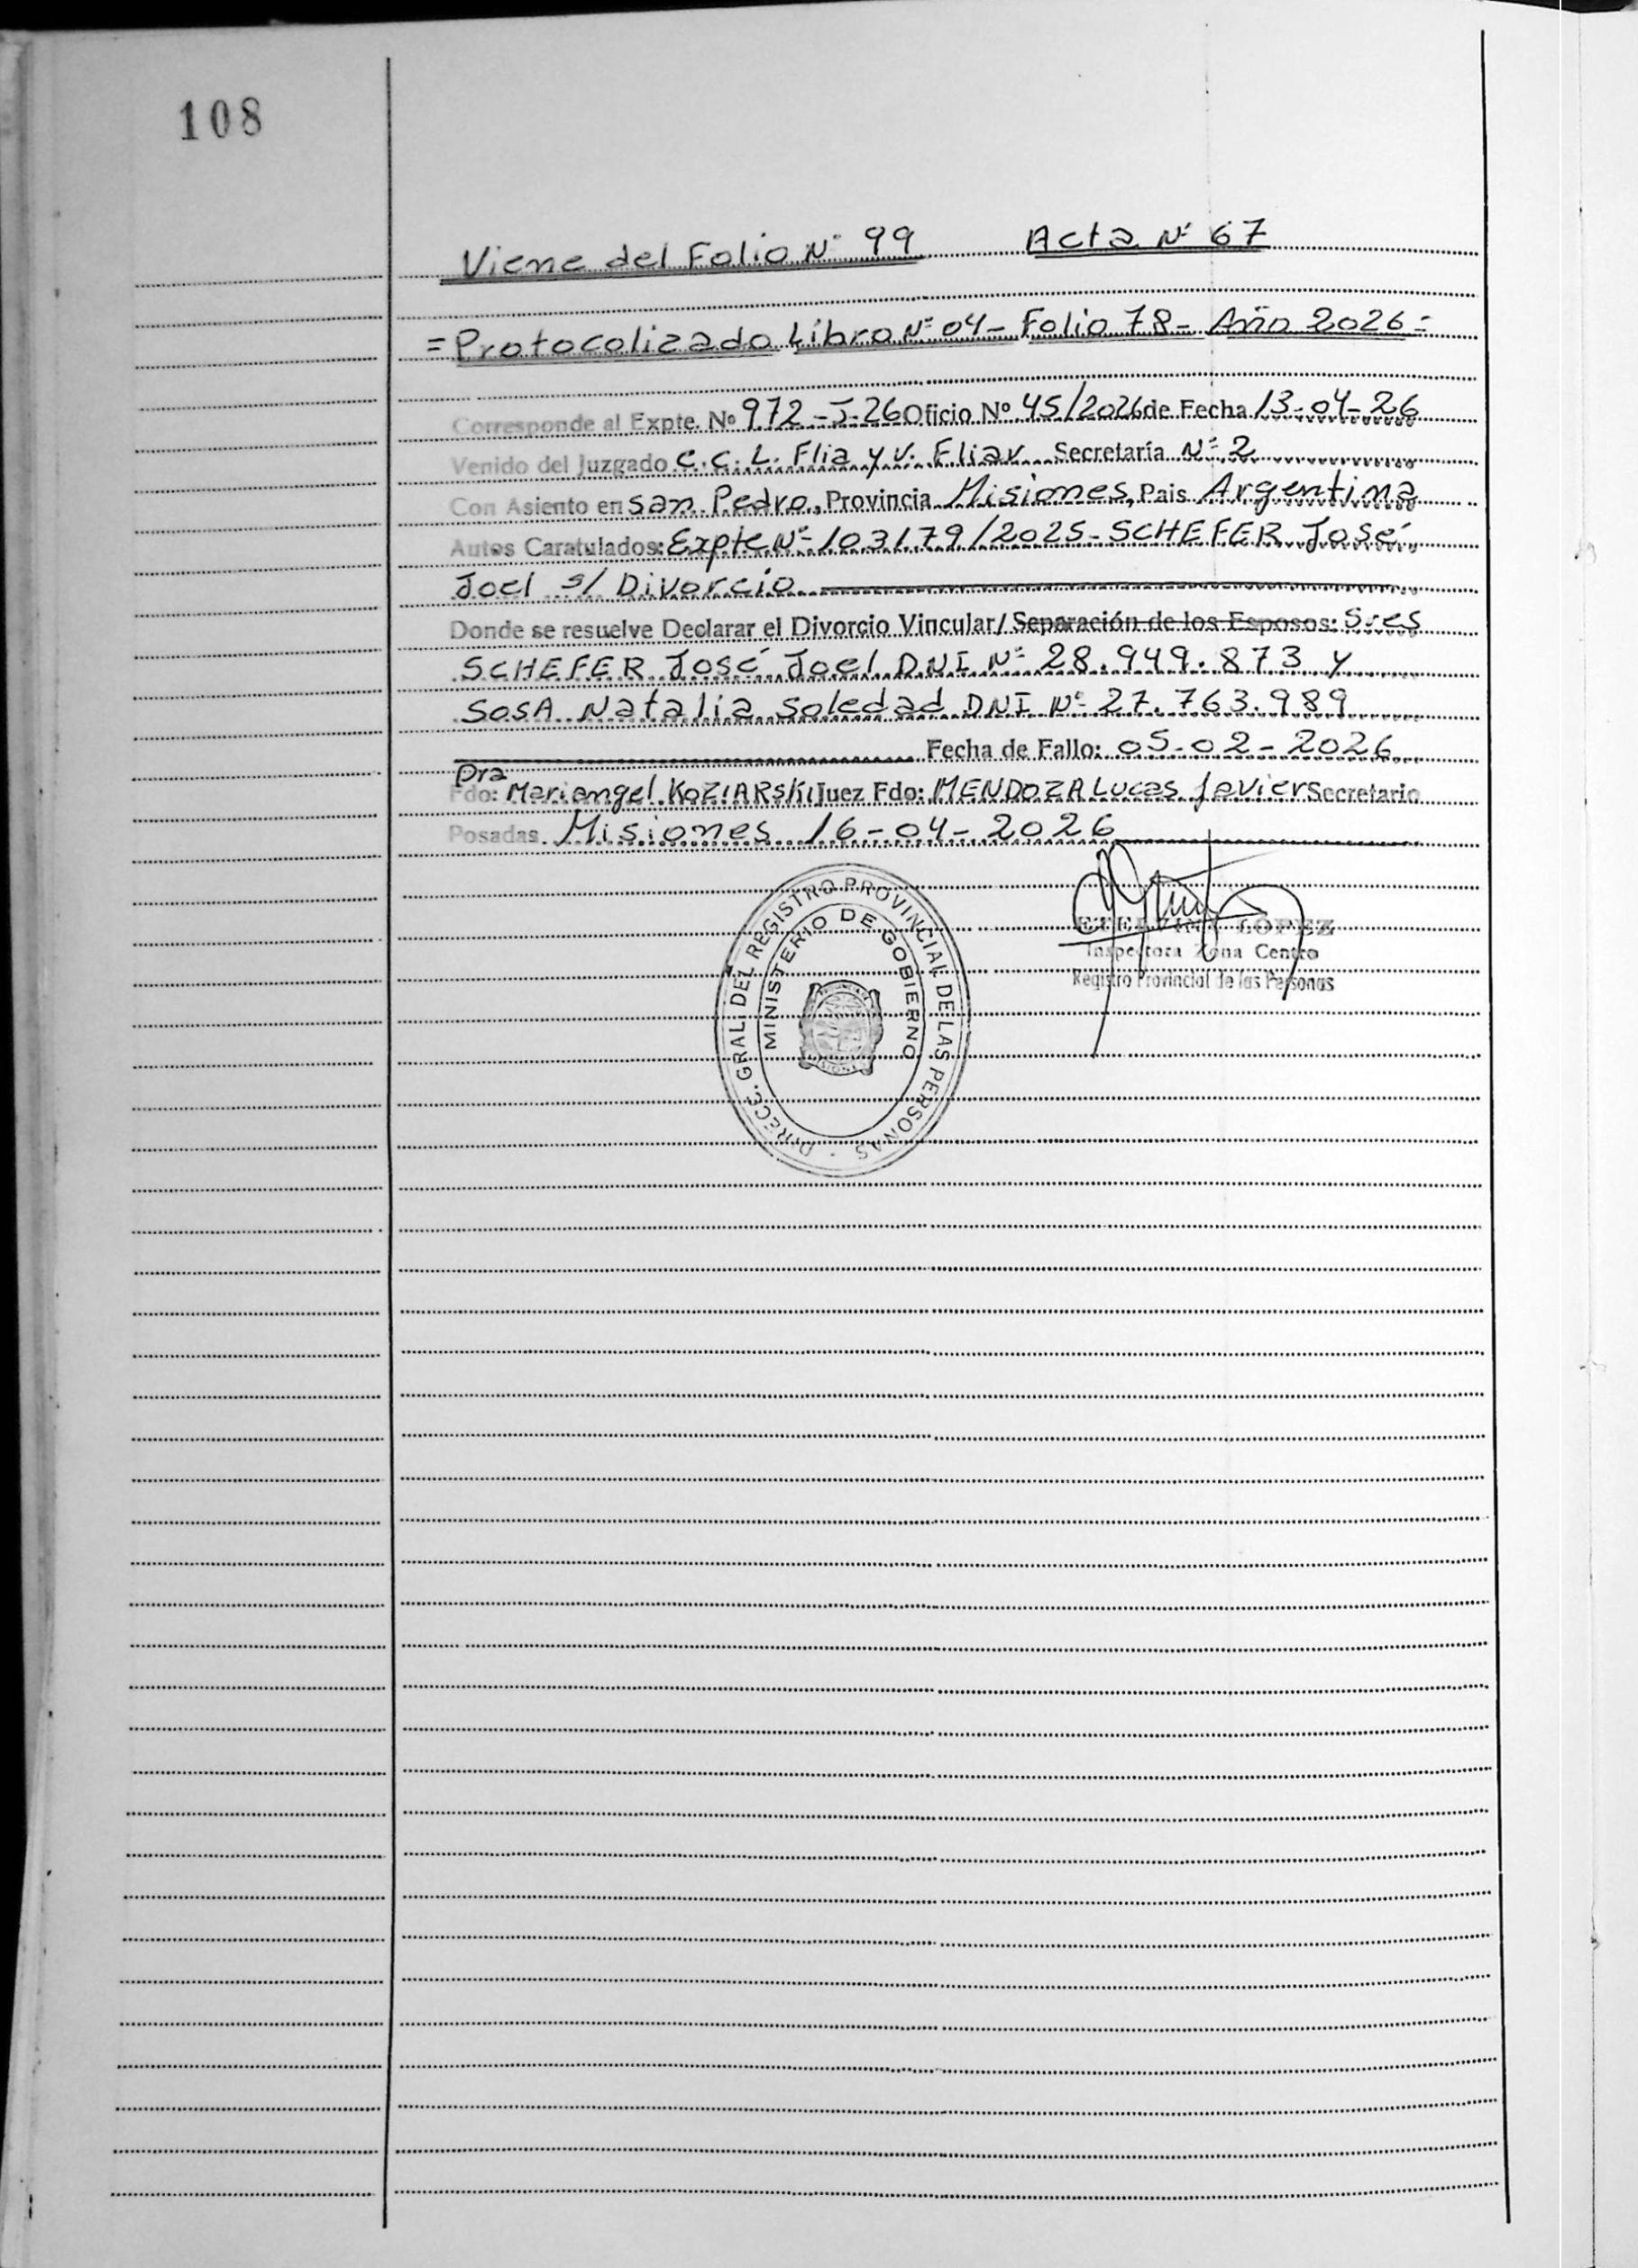 108
Viene del Folio Nº 99 Acta Nº 67
= Protocolizado Libro Nº 04 - Folio 78 - Año 2026 =
Corresponde al Expte. Nº 972-J-26 Oficio Nº 45/2026 de Fecha 13-04-26
Venido del Juzgado C.C.L. Flia y V. Fliar Secretaría Nº 2
Con Asiento en San Pedro, Provincia Misiones, Pais Argentina
Autos Caratulados: Expte Nº 103179/2025 - SCHEFER José
Joel s/ Divorcio
Donde se resuelve Declarar el Divorcio Vincular/ Separación de los Esposos: Sres
SCHEFER José Joel DNI Nº 28.949.873 y
SOSA Natalia Soledad DNI Nº 27.763.989
Fecha de Fallo: 05-02-2026
Dra
Fdo: Mariangel KOZIARSKI Juez Fdo: MENDOZA Lucas Javier Secretario
Posadas. Misiones 16-04-2026
DIRECC. GRAL. DEL REGISTRO PROVINCIAL DE LAS PERSONAS
MINISTERIO DE GOBIERNO
LOPEZ
Inspectora Zona Centro
Registro Provincial de las Personas